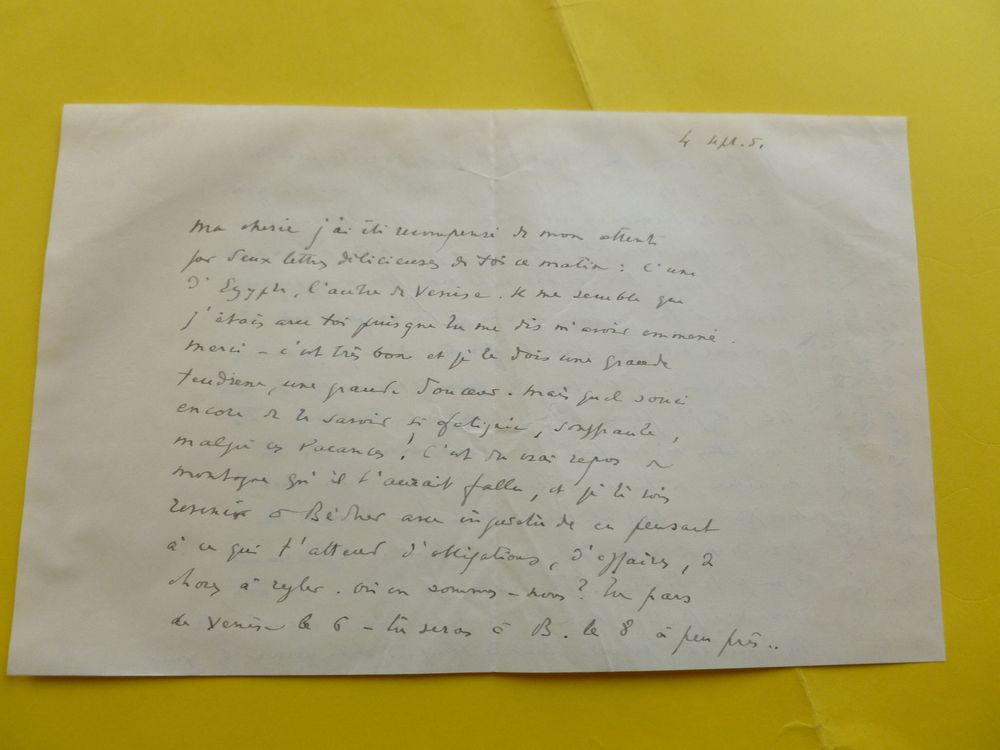 4 sept. 51
Ma chérie j'ai été récompensé de mon attente
par deux lettres délicieuses de toi ce matin : l'une
d'Egypte, l'autre de Venise. Il me semble que
j'étais avec toi puisque tu me dis m'avoir emmené.
Merci - c'est très bon et je te dois une grande
tendresse, une grande douceur. Mais quel souci
encore de te savoir si fatiguée, souffrante,
malgré ces vacances! C'est du vrai repos de
montagne qu'il t'aurait fallu, et je te vois
revenir à avec inquiétude en pensant
à ce qui t'attend d'obligations, d'affaires, de
choses à régler. Où en sommes-nous? Tu pars
de Venise le 6 - tu seras à B. le 8 à peu près..